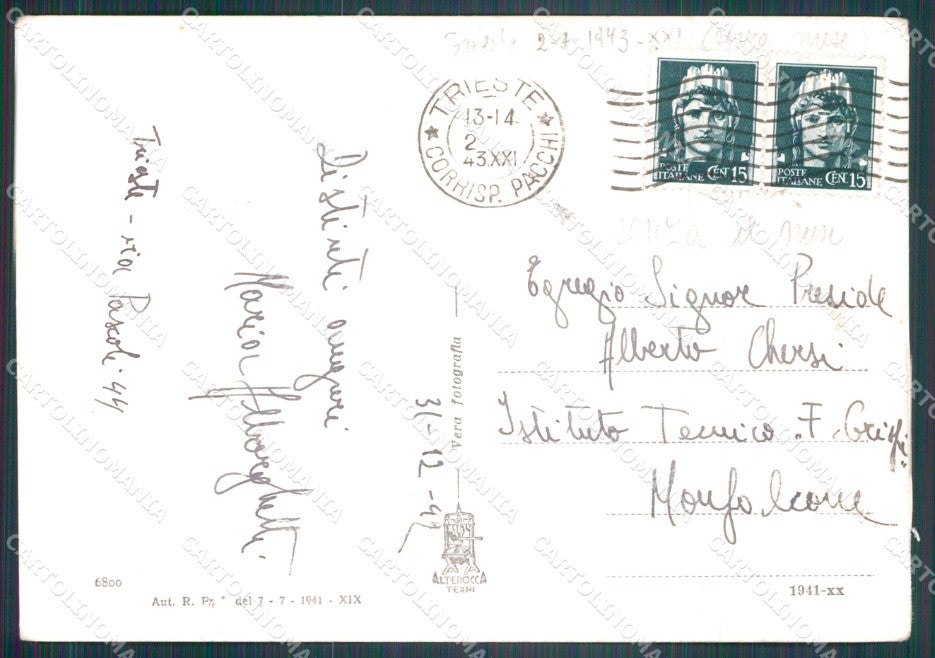 2-1-1943-XXI (senza mese)
TRIESTE
13-14
2
43.XXI
CORRISP. PACCHI
POSTE ITALIANE CEN 15
POSTE ITALIANE CEN 15
senza il mese
Trieste - via Pascoli 44
Distinti auguri
Maria
31-12-42
Vera fotografia
Egregio Signor Preside
Alberto Chersi
Istituto Tecnico "F. Grisi"
Monfalcone
ALTEROCCA
TERNI
6800
Aut. R. Pr. del 7 - 7 - 1941 - XIX
1941-XX
CARTOLINOMANIA